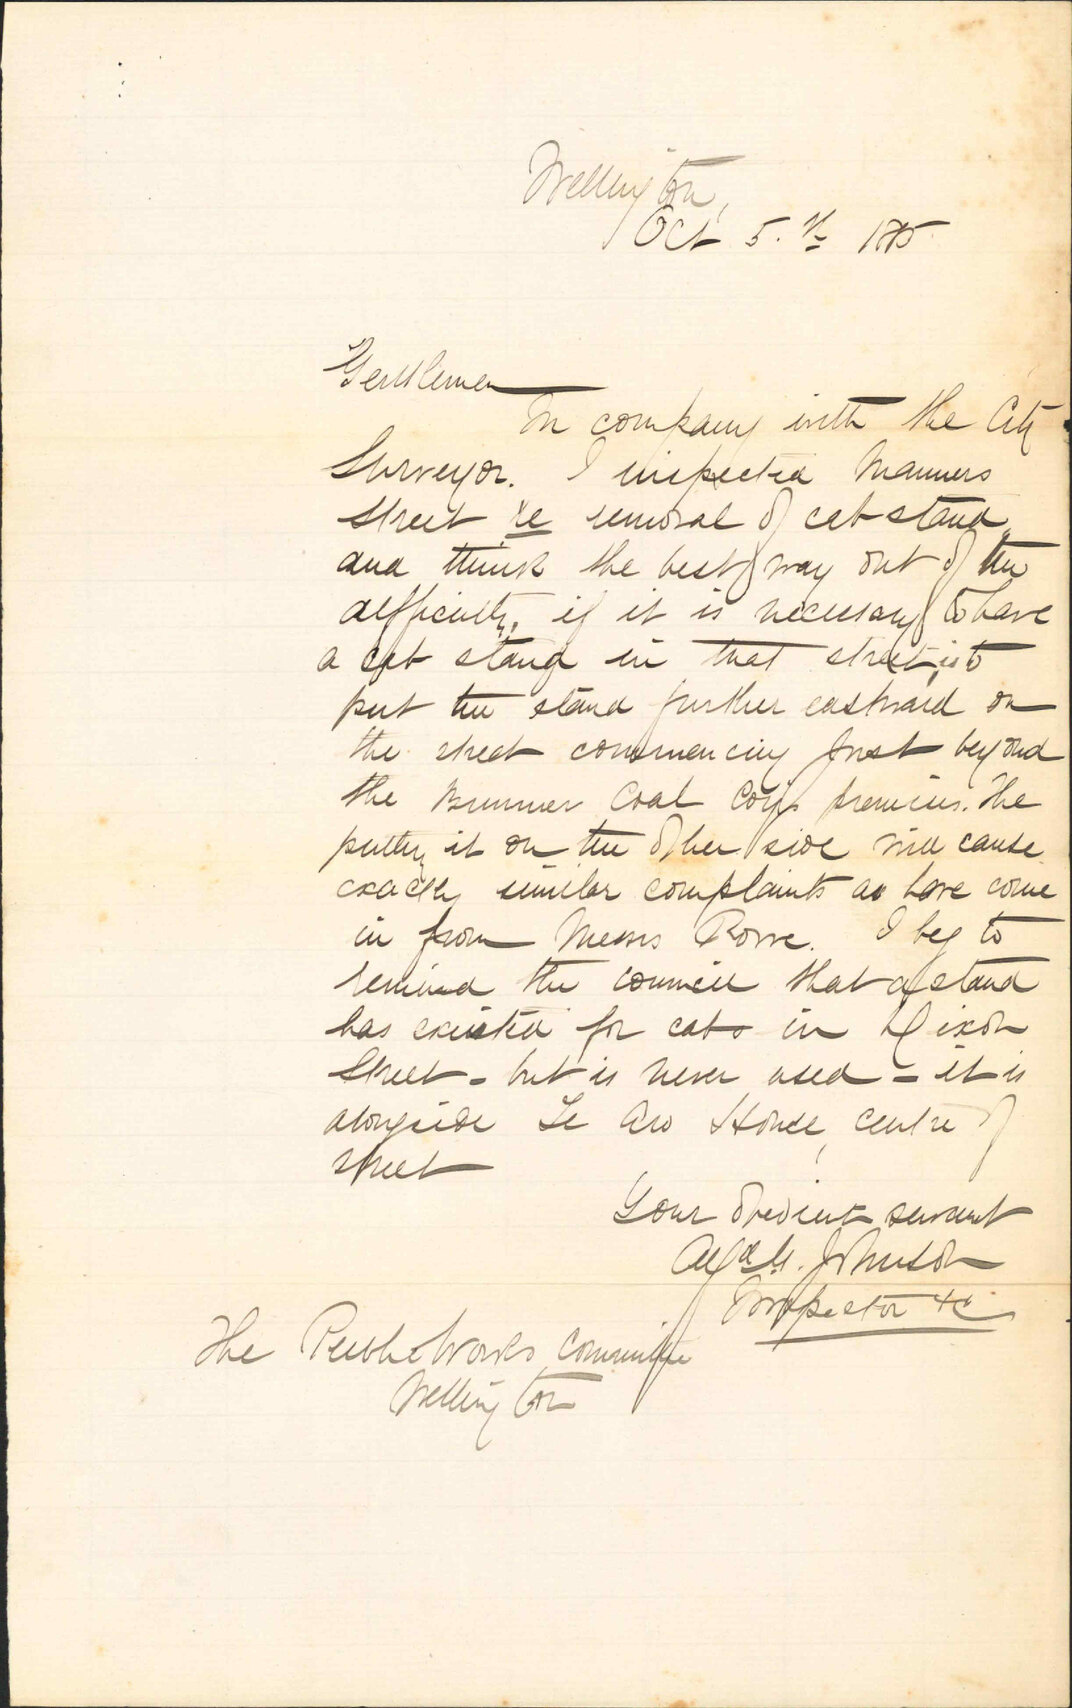 Wellington,
Oct 5.th
Gentlemen
In company with the City
Surveyor. I inspected Manners
Street re removal of cab stand,
and think the best way out of the
difficulty, if it is necessary to have
a cab stand in that street, is to
put the stand further eastward on
the street commencing just beyond
the Brunner Coal Coy's premises. The
putting it on the other side will cause
exactly similar complaints as have come
in from Messrs Rowe. I beg to
remind the council that a stand
has existed for cabs in Dixon
Street - but is never used - it is
alongside Te Aro House, centre of
street
Your obedient servant
Johnson
Inspector &c
The Public Works Committee
Wellington